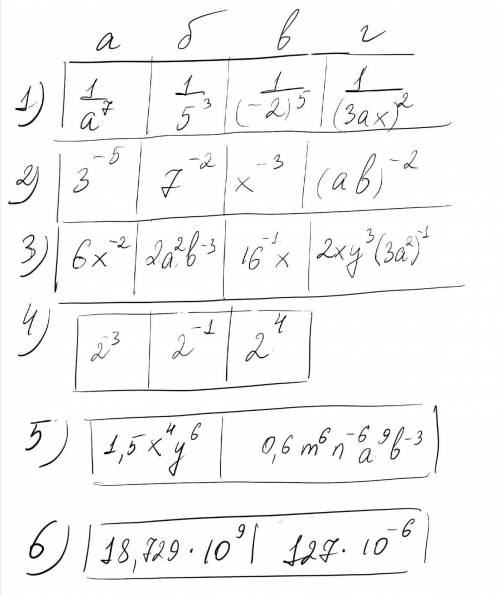 а б в г
1) 1/a⁷ | 1/5³ | 1/(-2)⁵ | 1/(3ax)²
2) 3⁻⁵ | 7⁻² | x⁻³ | (ab)⁻²
3) 6x⁻² | 2a²b⁻³ | 16⁻¹x | 2xy³(3a²)⁻¹
4) 2³ | 2⁻¹ | 2⁴
5) 1,5x⁴y⁶ | 0,6m⁶n⁻⁶a⁹b⁻³
6) 18,729·10⁹ | 127·10⁻⁶